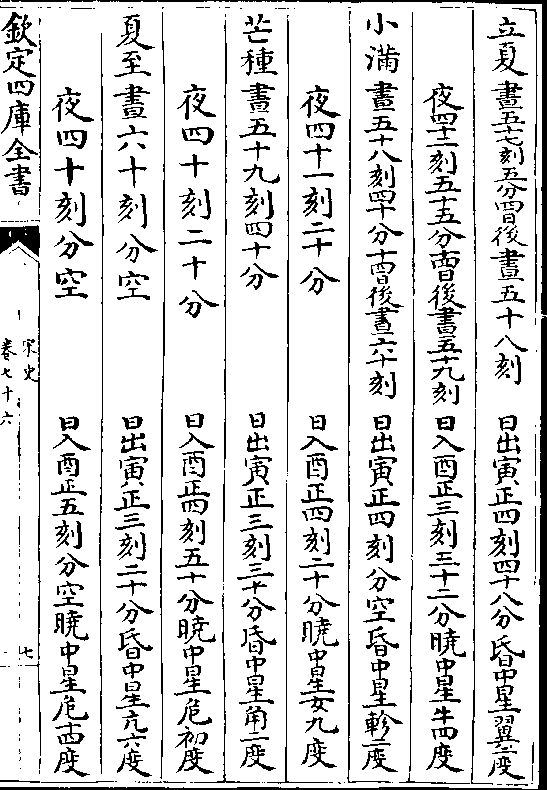 立夏 晝五十七刻五分四日後晝五十八刻 日出寅正四刻四十八分昏中星翼二度
夜四十二刻五十五分十四日後晝五十九刻 日入酉正三刻三十二分曉中星牛四度
小滿 晝五十八刻四十分十四日後晝六十刻 日出寅正四刻分空昏中星軫二度
夜四十一刻二十分 日入酉正四刻二十分曉中星女九度
芒種 晝五十九刻四十分 日出寅正三刻三十分昏中星角二度
夜四十刻二十分 日入酉正四刻五十分曉中星危初度
夏至 晝六十刻分空 日出寅正三刻二十分昏中星亢六度
夜四十刻分空 日入酉正五刻分空曉中星危十四度
欽定四庫全書
宋史
卷七十六
七